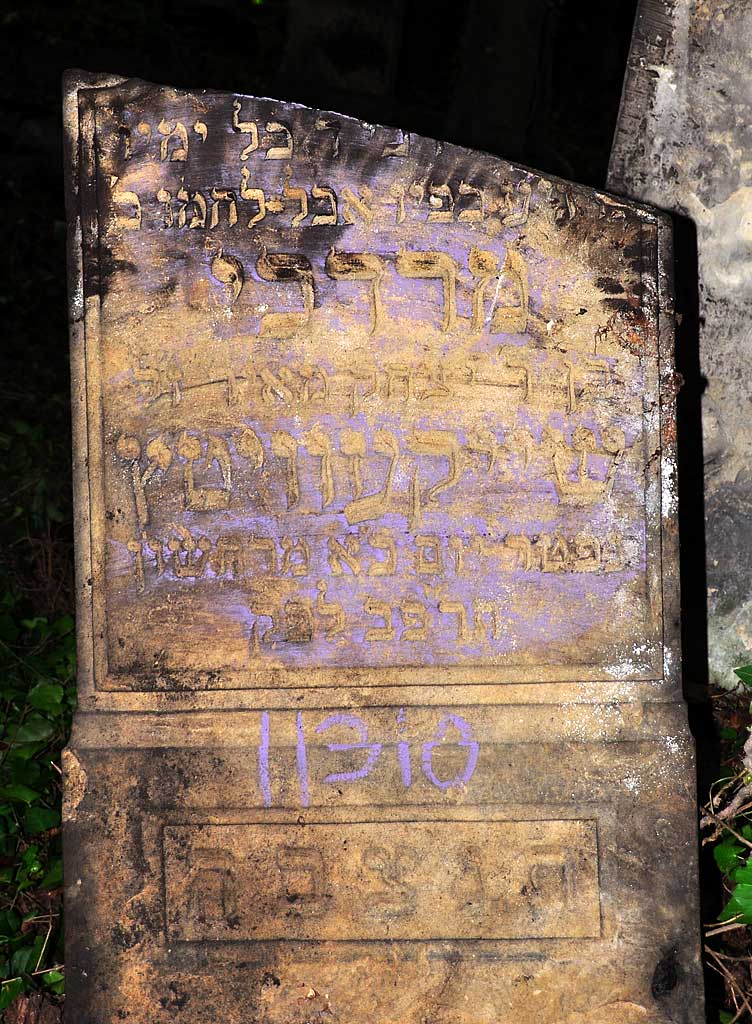 כל ימיו
כפיו אכל לחמו
מרדכי
בן ר' יצחק מאיר ז"ל
שייקנוויטץ
נפטר יום כ"א מרחשון
תר"פב לפק
הנצבה